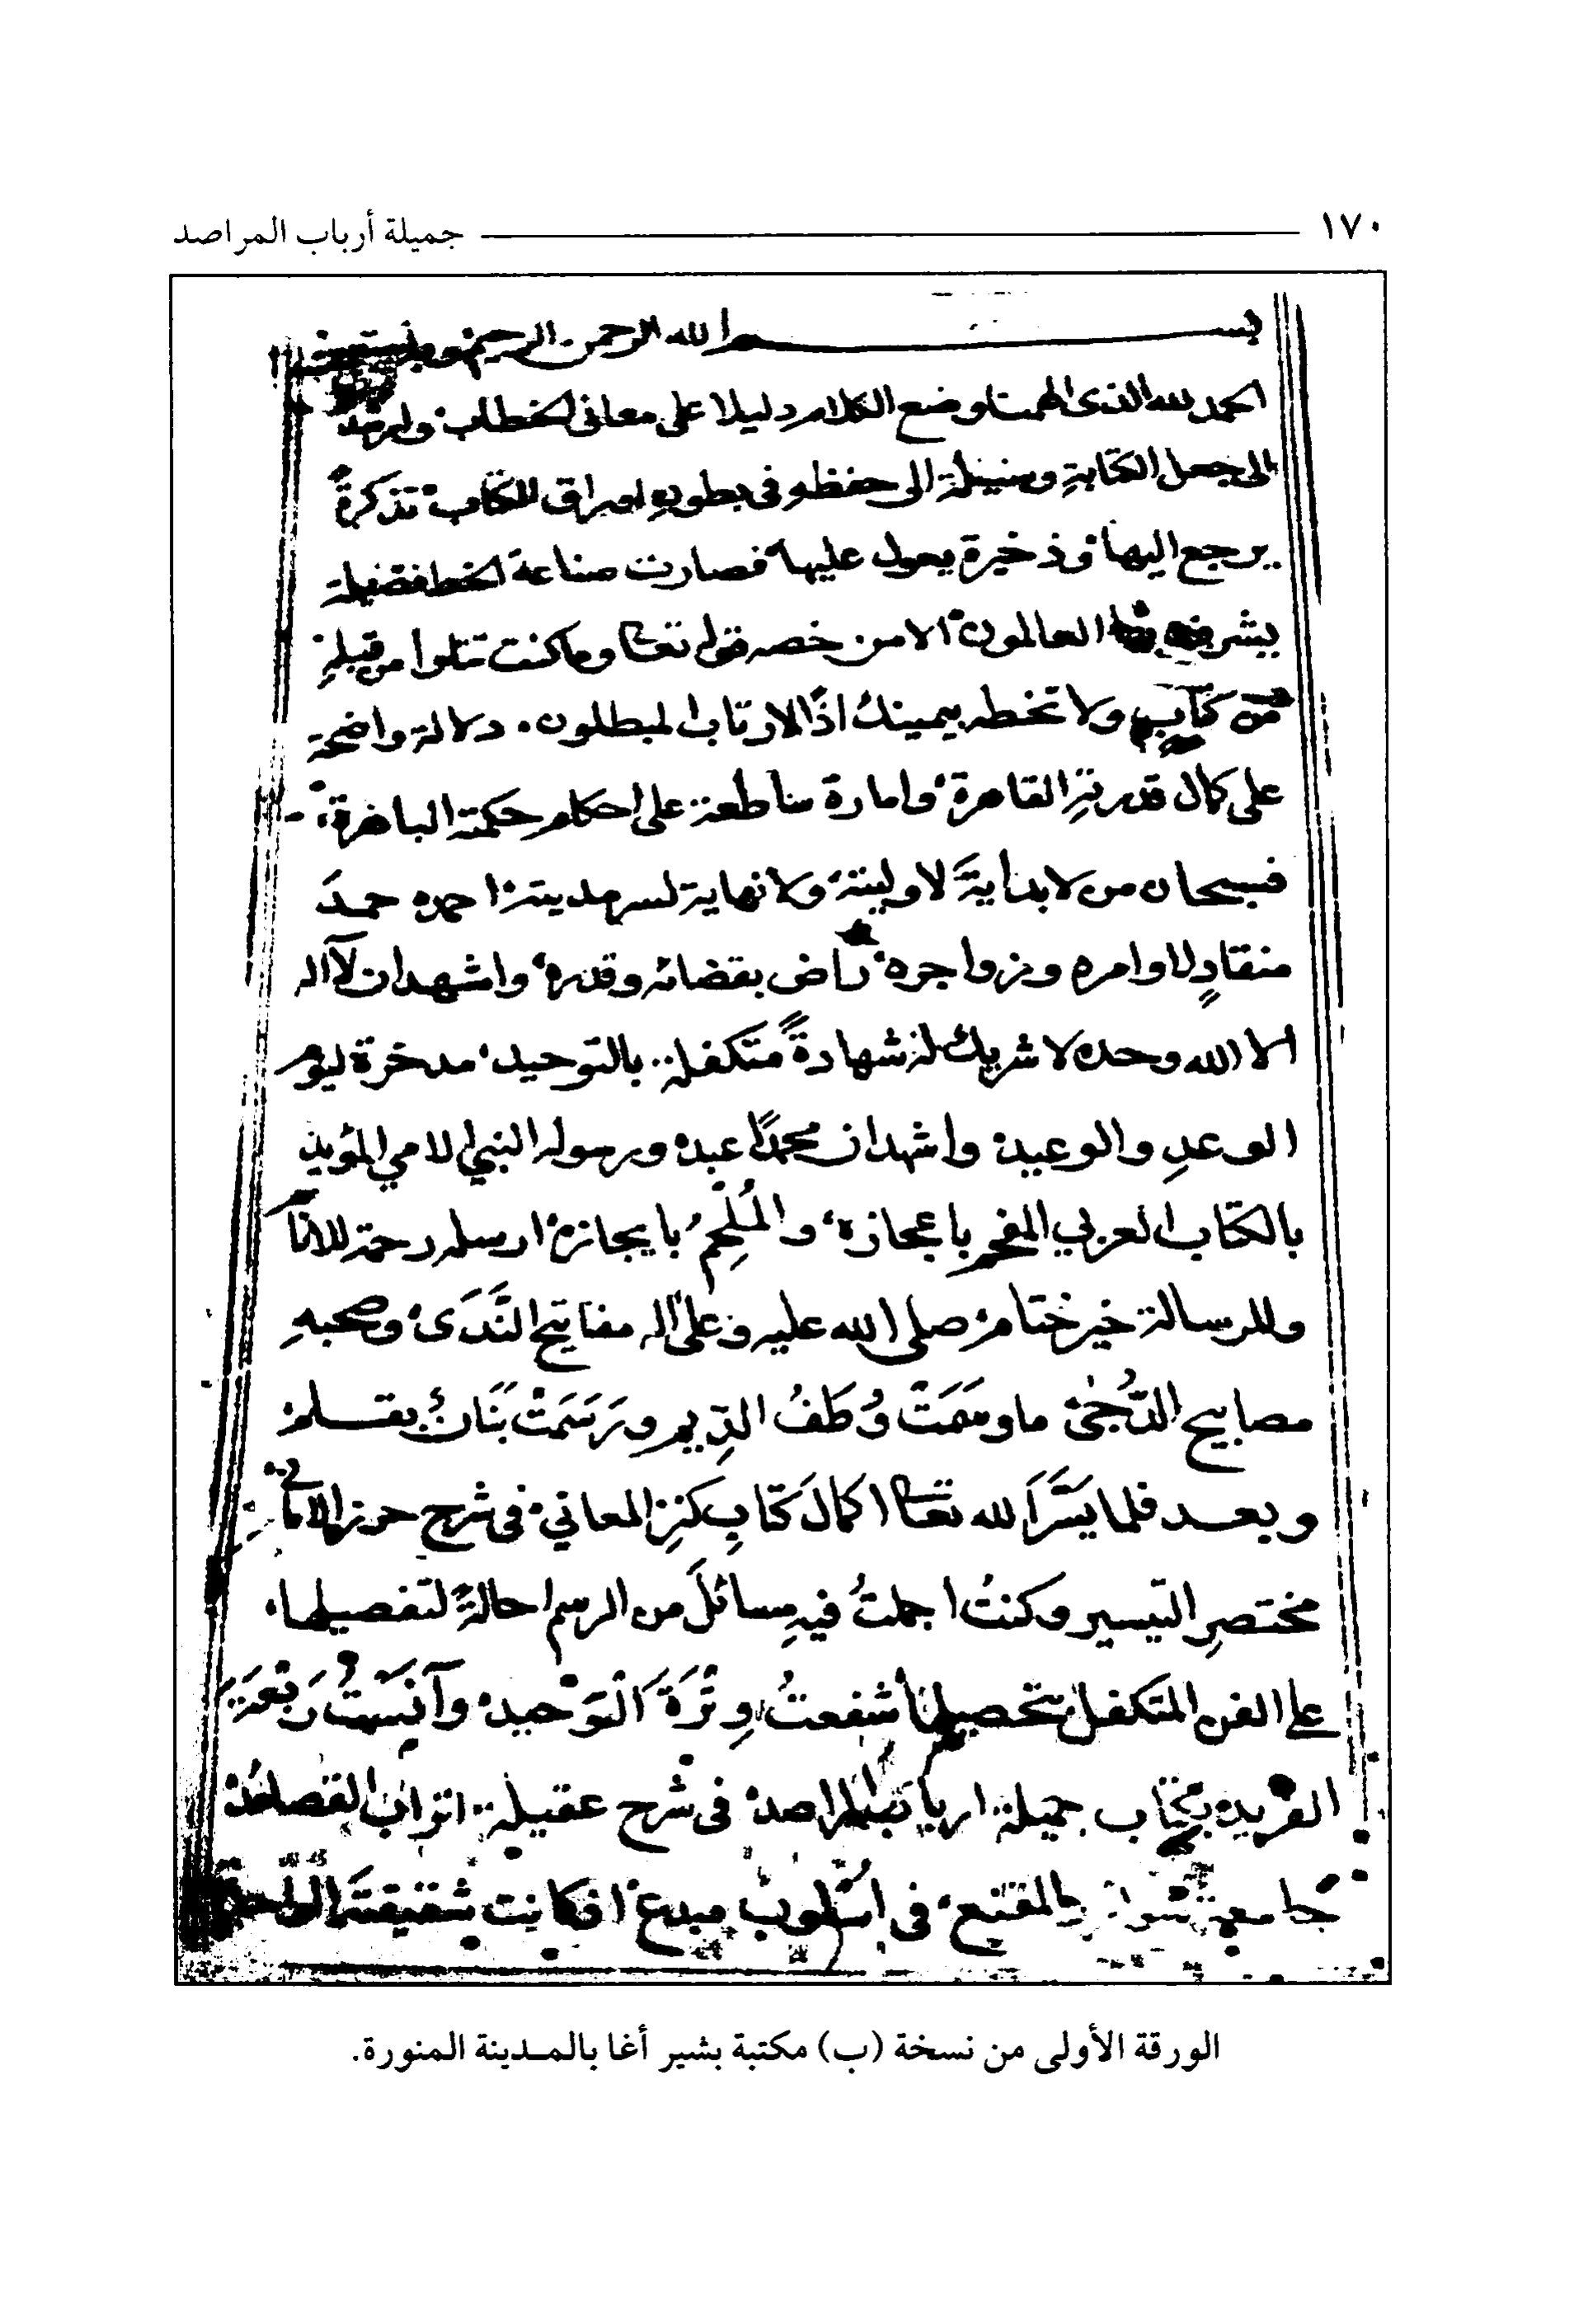 ١٧٠ جميلة أرباب المراصد
بسم الله الرحمن الرحيم وبه نستعين
الحمد لله الذى الهمنا وضع الكلام دليلا على معانى الخطاب وارشدنا
الى جعل الكتابة وسيلة الى حفظه فى بطون اوراق الكتاب تذكرةً
يرجع اليها وذخيرة يعول عليها فصارت صناعة الخط فضيلة
يشرف بها العالمون الا من خصه قوله تعا وما كنت تتلوا من قبله
من كتاب ولا تخطه بيمينك اذًا لارتاب المبطلون دلالة واضحة
على كمال قدرته القاهرة وامارة ساطعة على احكام حكمته الباهرة
فسبحان من لا بداية لاوليته ولا نهاية لسرمديته احمده حمدَ
منقادٍ لاوامره وزواجره راض بقضائه وقدره واشهد ان لآ اله
الا الله وحده لا شريك له شهادةً متكفلة بالتوحيد مدخرة ليوم
الوعدِ والوعيد واشهد ان محمدًا عبده ورسوله النبي الامي المؤيد
بالكتاب العربي المفحم باعجازه والمُلْحِم بايجازه ارسله رحمة للانام
وللرسالة خير ختام صلى الله عليه وعلى اله مفاتيح النَّدَى وصحبهِ
مصابيح الدُّجى ما ومَضَتْ وُطَفُ الدِّيم ورَسَمَتْ بَنَانٌ بقلم
وبعد فلما يَسَّرَ الله تعا اكمالَ كتابِ كنزِ المعاني فى شرح حرز الامانى
مختصرِ التيسير وكنتُ اجملتُ فيهِ مسائلَ من الرسم احالةً لتفصيلها
على الفن المتكفل بتحصيلها شفعتُ وِتْرَةَ التوحيد وآنَسْتُ رَبْعَةَ
الفريد بكتاب جميلة ارباب المراصد فى شرح عقيلة اتراب القصائد
جامعة بالمقنع فى اسلوب مبدع فكانت شقيقة
الورقة الأولى من نسخة (ب) مكتبة بشير أغا بالمـدينة المنورة.